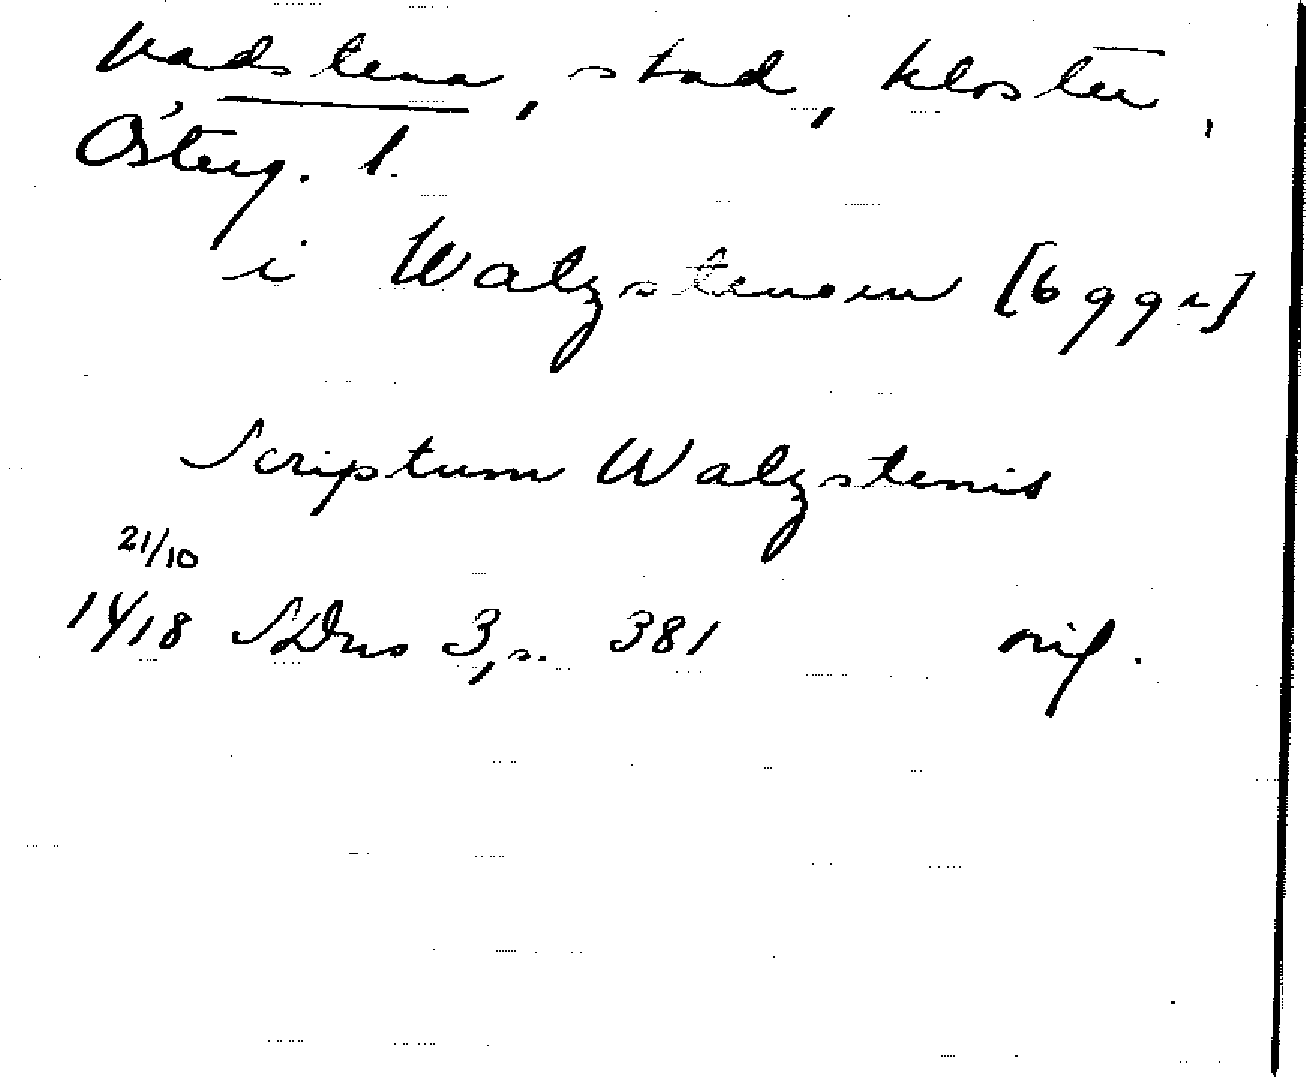 Vadstena, stad, kloster,
Österg. l.
i Walzstenom [6 ggr]
Scriptum Walzstenis
21/10
1418 SDns 3, s. 381 orig.